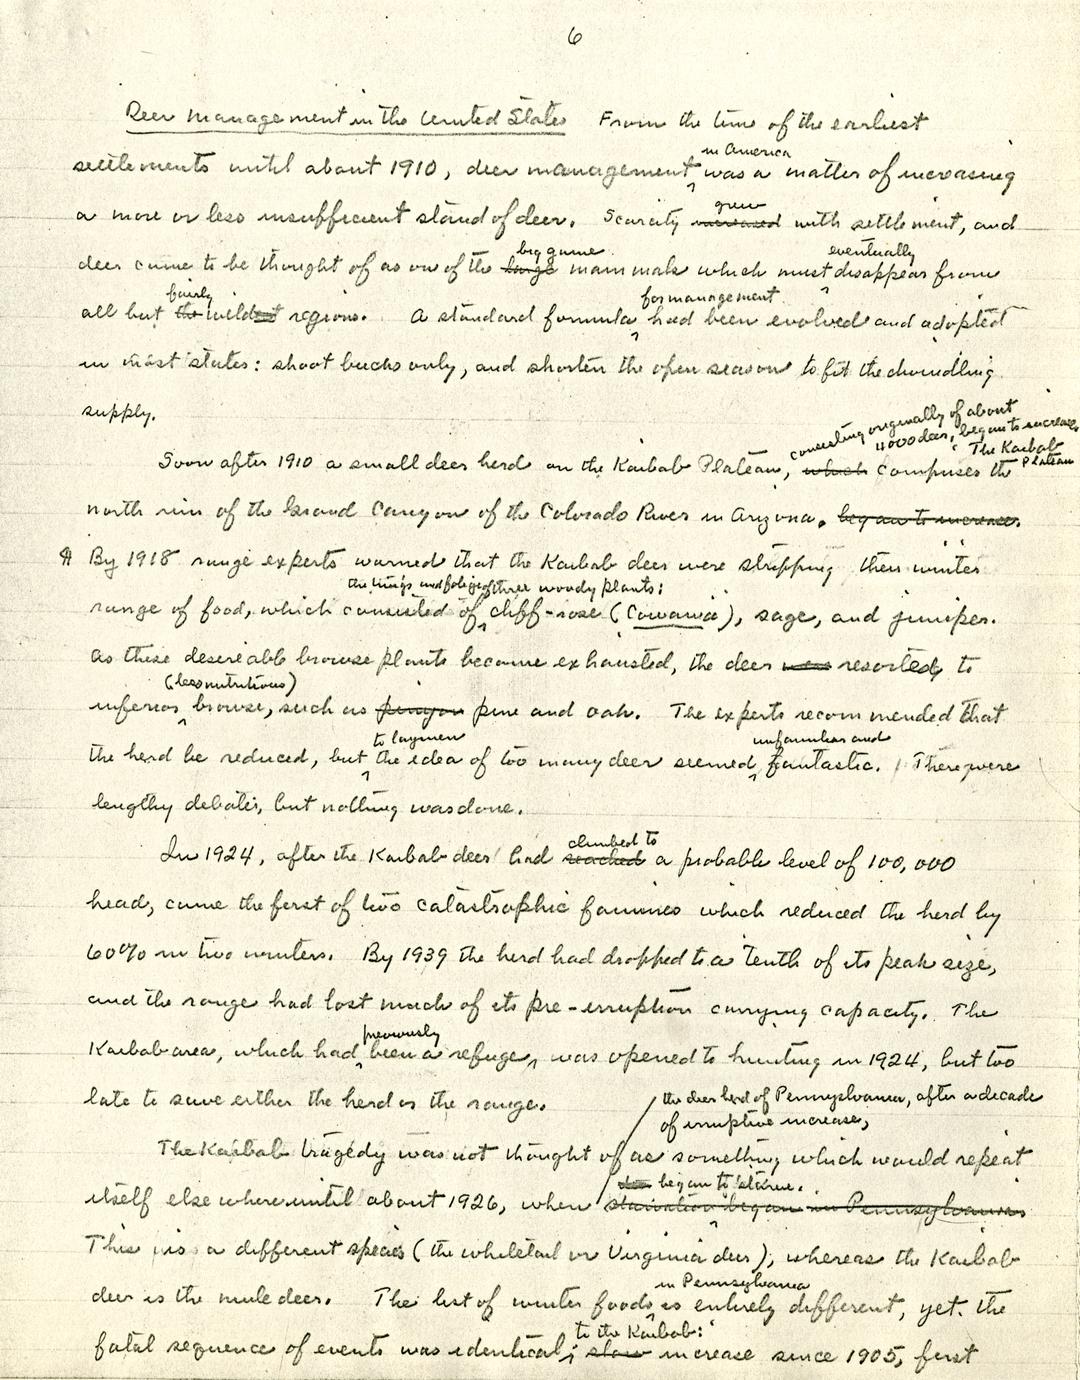 6
Deer management in the United States From the time of the earliest
in America
settlements until about 1910, deer management was a matter of increasing
grew
a more or less insufficient stand of deer. Scarcity increased with settlement, and
big game eventually
deer came to be thought of as one of the large mammals which must disappear from
fairly for management
all but the wildest regions. A standard formula had been evolved and adopted
in most states: shoot bucks only, and shorten the open season to fit the dwindling
supply.
consisting originally of about
4000 deer, began to increase.
The Kaibab
Plateau
Soon after 1910 a small deer herd on the Kaibab Plateau, which comprises the
north rim of the Grand Canyon of the Colorado River in Arizona. began to increase.
¶ By 1918 range experts warned that the Kaibab deer were stripping their winter
the twigs and foliage of three woody plants:
range of food, which consisted of cliff-rose (Cowania), sage, and juniper.
As these desireable browse plants became exhausted, the deer were resorted to
(less nutritious)
inferior browse, such as pinyon pine and oak. The experts recommended that
to laymen unfamiliar and
the herd be reduced, but the idea of too many deer seemed fantastic. There were
lengthy debates, but nothing was done.
climbed to
In 1924, after the Kaibab deer had reached a probable level of 100,000
head, came the first of two catastrophic famines which reduced the herd by
60% in two winters. By 1939 the herd had dropped to a tenth of its peak size,
and the range had lost much of its pre-irruption carrying capacity. The
previously
Kaibab area, which had been a refuge, was opened to hunting in 1924, but too
late to save either the herd or the range.
the deer herd of Pennsylvania, after a decade
of irruptive increase,
The Kaibab tragedy was not thought of as something which would repeat
began to starve.
itself elsewhere until about 1926, when starvation began in Pennsylvania
This is a different species (the whitetail or Virginia deer), whereas the Kaibab
in Pennsylvania
deer is the mule deer. The list of winter foods is entirely different, yet the
to the Kaibab:
fatal sequence of events was identical; slow increase since 1905, first